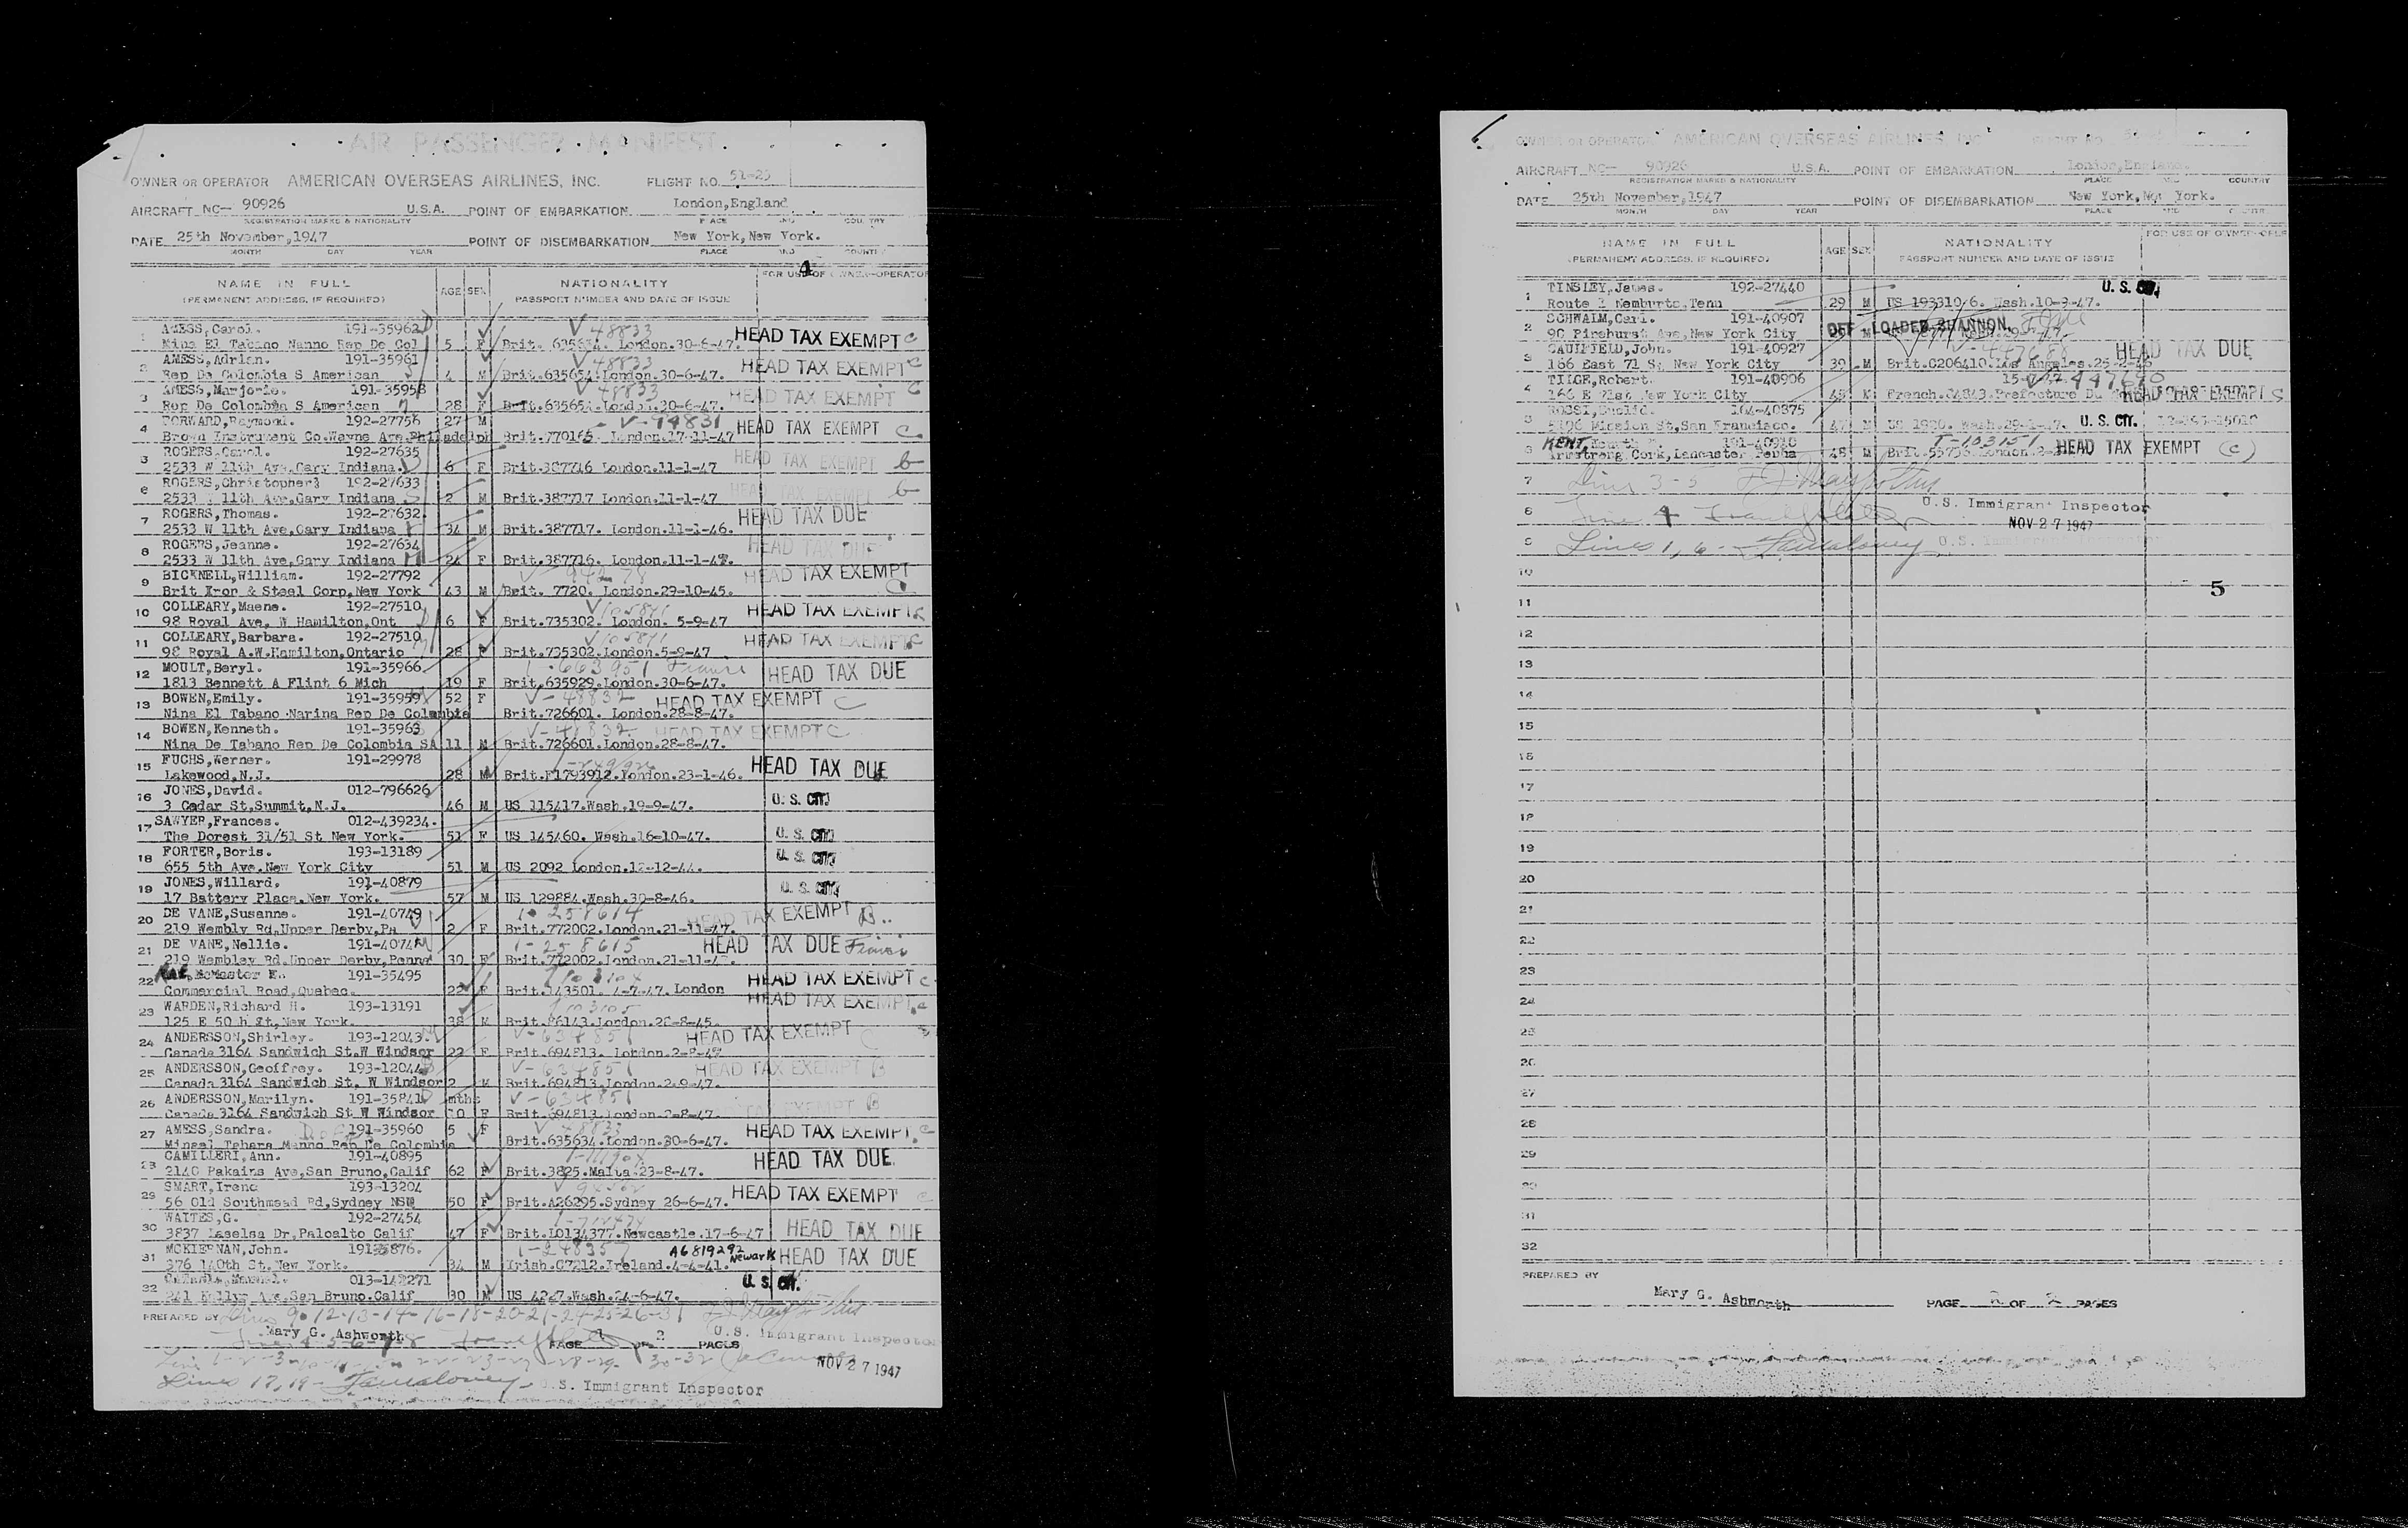 AIR PASSENGER MANIFEST
OWNER OR OPERATOR AMERICAN OVERSEAS AIRLINES, INC. FLIGHT NO. 51-25
AIRCRAFT NC— 90926 U.S.A. POINT OF EMBARKATION London,England
REGISTRATION MARKS & NATIONALITY PLACE AND COUNTRY
DATE 25th November,1947 POINT OF DISEMBARKATION New York,New York.
MONTH DAY YEAR PLACE AND COUNTRY
4
NAME IN FULL AGE SEX NATIONALITY FOR USE OF OWNER-OPERATOR
(PERMANENT ADDRESS, IF REQUIRED) PASSPORT NUMBER AND DATE OF ISSUE
1 AMESS,Carol. 191-35962 V 48833 HEAD TAX EXEMPT C
Mina El Tabano Nanno Rep De Col 5 F Brit. London.30-6-47.
2 AMESS,Adrian. 191-35961 V 48833 HEAD TAX EXEMPT C
Rep De Colombia S American 4 M Brit.635654.London.30-6-47.
3 AMESS,Marjorie. 191-35958 V 48833 HEAD TAX EXEMPT C
Rep De Colombia S American 28 F Brit.635654.London.30-6-47.
4 DORWARD,Raymond. 192-27756 27 M V-94831 HEAD TAX EXEMPT C
Brown Instrument Co.Wayne Ave.Philadelph Brit.770165 London.17-11-47
5 ROGERS,Carol. 192-27635 HEAD TAX EXEMPT b
2533 W 11th Ave,Gary Indiana. 6 F Brit.387716 London.11-1-47
6 ROGERS,Christopher. 192-27633 HEAD TAX EXEMPT b
2533 W 11th Ave,Gary Indiana 2 M Brit.387717 London.11-1-47
7 ROGERS,Thomas. 192-27632. HEAD TAX DUE
2533 W 11th Ave,Gary Indiana 34 M Brit.387717. London.11-1-46.
8 ROGERS,Jeanne. 192-27634 HEAD TAX DUE
2533 W 11th Ave,Gary Indiana 24 F Brit.387716. London.11-1-47.
9 BICKNELL,William. 192-27792 V-94278 HEAD TAX EXEMPT
Brit Iron & Steel Corp,New York 43 M Brit. 7720. London.29-10-45. C
10 COLLEARY,Maene. 192-27510 V105871 HEAD TAX EXEMPT C
98 Royal Ave, W Hamilton,Ont 6 F Brit.735302. London. 5-9-47
11 COLLEARY,Barbara. 192-27510 V105871 HEAD TAX EXEMPT C
98 Royal A.W.Hamilton,Ontario 28 F Brit.735302.London.5-9-47
12 MOULT,Beryl. 191-35966 1-663951 HEAD TAX DUE
1813 Bennett A Flint 6 Mich 19 F Brit.635929.London.30-6-47.
13 BOWEN,Emily. 191-35959 52 F V-48832 HEAD TAX EXEMPT C
Nina El Tabano Narina Rep De Colombia Brit.726601. London.28-8-47.
14 BOWEN,Kenneth. 191-35963 V-48832 HEAD TAX EXEMPT C
Nina De Tabano Rep De Colombia SA 11 M Brit.726601.London.28-8-47.
15 FUCHS,Werner. 191-29978 HEAD TAX DUE
Lakewood,N.J. 28 M Brit.F1793912.London.23-1-46.
16 JONES,David. 012-796626 U. S. CIT.
3 Cedar St,Summit,N.J. 46 M US 115417.Wash.19-9-47.
17 SAWYER,Frances. 012-439234.
The Dorest 31/51 St New York. 51 F US 145460. Wash.16-10-47. U. S. CIT.
18 FORTER,Boris. 193-13189 U. S. CIT.
655 5th Ave.New York City 51 M US 2092 London.12-12-44.
19 JONES,Willard. 191-40879 U. S. CIT.
17 Battery Place,New York. 57 M US 129884.Wash.30-8-46.
20 DE VANE,Susanne. 191-40749 1-258614 HEAD TAX EXEMPT B
219 Wembly Rd,Upper Derby,Pa 2 F Brit.772002.London.21-11-47.
21 DE VANE,Nellie. 191-4074 1-258615 HEAD TAX DUE
219 Wembley Rd.Upper Derby,Penna 30 F Brit.772002.London.21-11-47.
22 McMaster 191-35495 HEAD TAX EXEMPT C
Commercial Road,Quebec. 22 F Brit.143501. 4-7-47. London
23 WARDEN,Richard H. 193-13191 HEAD TAX EXEMPT
125 E 50 h St,New York. 38 M Brit.86143.London.28-8-45.
24 ANDERSSON,Shirley. 193-12043 V-634851 HEAD TAX EXEMPT C
Canada 3164 Sandwich St.W Windsor 22 F Brit.694813. London.2-8-47
25 ANDERSSON,Geoffrey. 193-12044 V-634851 HEAD TAX EXEMPT B
Canada 3164 Sandwich St, W Windsor 2 M Brit.694813.London.2-9-47.
26 ANDERSSON,Marilyn. 191-35841 mths V-634851
Canada 3164 Sandwich St W Windsor 10 F Brit.694813.London.2-8-47. TAX EXEMPT B
27 AMESS,Sandra. 191-35960 5 F V 48833 HEAD TAX EXEMPT C
Rep De Colombia Brit.635634.London.30-6-47.
28 CAMILLERI,Ann. 191-40895 HEAD TAX DUE
2140 Pakains Ave,San Bruno,Calif 62 F Brit.3825.Malta.23-8-47.
29 SMART,Irene 193-13204 HEAD TAX EXEMPT
56 Old Southmead Rd,Sydney NSW 50 F Brit.A26295.Sydney 26-6-47.
30 WAITES,G. 192-27454
3837 Laselsa Dr,Paloalto Calif 47 F Brit.L0134377.Newcastle.17-6-47 HEAD TAX DUE
31 MCKIERNAN,John. 1-248357 A6819292 Newark HEAD TAX DUE
376 140th St.New York. 34 M Irish.C7212.Ireland.4-4-41.
32 013-142271 U. S. CIT.
241 Kellyn Ave,San Bruno.Calif 30 M US 4227.Wash.24-6-47.
PREPARED BY Lines 9-12-13-14-16-18-20-21-24-25-26-31
Mary G. Ashworth PAGE 1 OF 2 PAGES U.S. Immigrant Inspector
NOV 27 1947
Lines 17,19- U.S. Immigrant Inspector
OWNER OR OPERATOR AMERICAN OVERSEAS AIRLINES, INC. FLIGHT NO.
AIRCRAFT NC— 90926 U.S.A. POINT OF EMBARKATION London,England.
REGISTRATION MARKS & NATIONALITY PLACE AND COUNTRY
DATE 25th November,1947 POINT OF DISEMBARKATION New York,New York.
MONTH DAY YEAR PLACE AND COUNTRY
NAME IN FULL AGE SEX NATIONALITY FOR USE OF OWNER-OPER
(PERMANENT ADDRESS, IF REQUIRED) PASSPORT NUMBER AND DATE OF ISSUE
1 TINSLEY,James. 192-27440 U. S. CIT.
Route 1 Nemburto,Tenn 29 M US 193310/6. Wash.10-9-47.
2 SCHWAIM,Carl. 191-40907
90 Pinehurst Ave,New York City M OFF LOADED SHANNON.
3 CAULFIELD,John. 191-40927 HEAD TAX DUE
166 East 71 St New York City 39 M Brit.C206410.Los Angeles.25-2-46
4 TILGE,Robert. 191-40906
166 E 71st New York City 45 M French. Prefecture Du HEAD TAX EXEMPT C
5 ROSSI,Euclid. 164-40875
Mission St,San Francisco. 47 M US 1920. Wash.29-1-47. U. S. CIT.
6 KENT, 191-40910 T-103151 HEAD TAX EXEMPT (C)
Armstrong Cork,Lancaster Penna 48 M Brit.
7 Lines 3-5
8 Line 4 U.S. Immigrant Inspector
NOV 27 1947
9 Lines 1, 6- U.S. Immigrant Inspector
10
5
11
12
13
14
15
16
17
18
19
20
21
22
23
24
25
26
27
28
29
30
31
32
PREPARED BY
Mary G. Ashworth PAGE 2 OF 2 PAGES